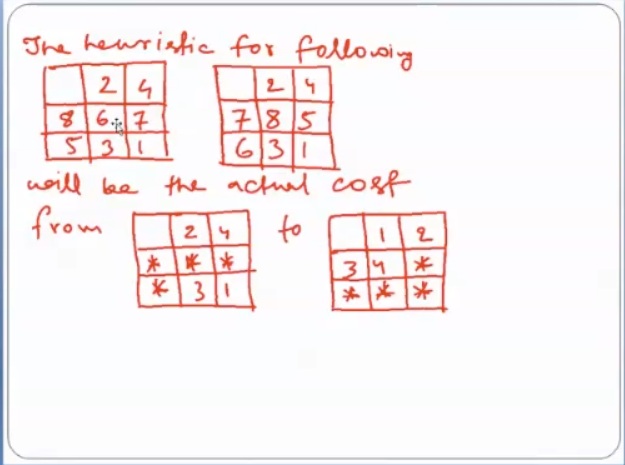 The heuristic for following
2 4 2 4
8 6 7 7 8 5
5 3 1 6 3 1
will be the actual cost
from 2 4 to 1 2
* * * 3 4 *
* 3 1 * * *